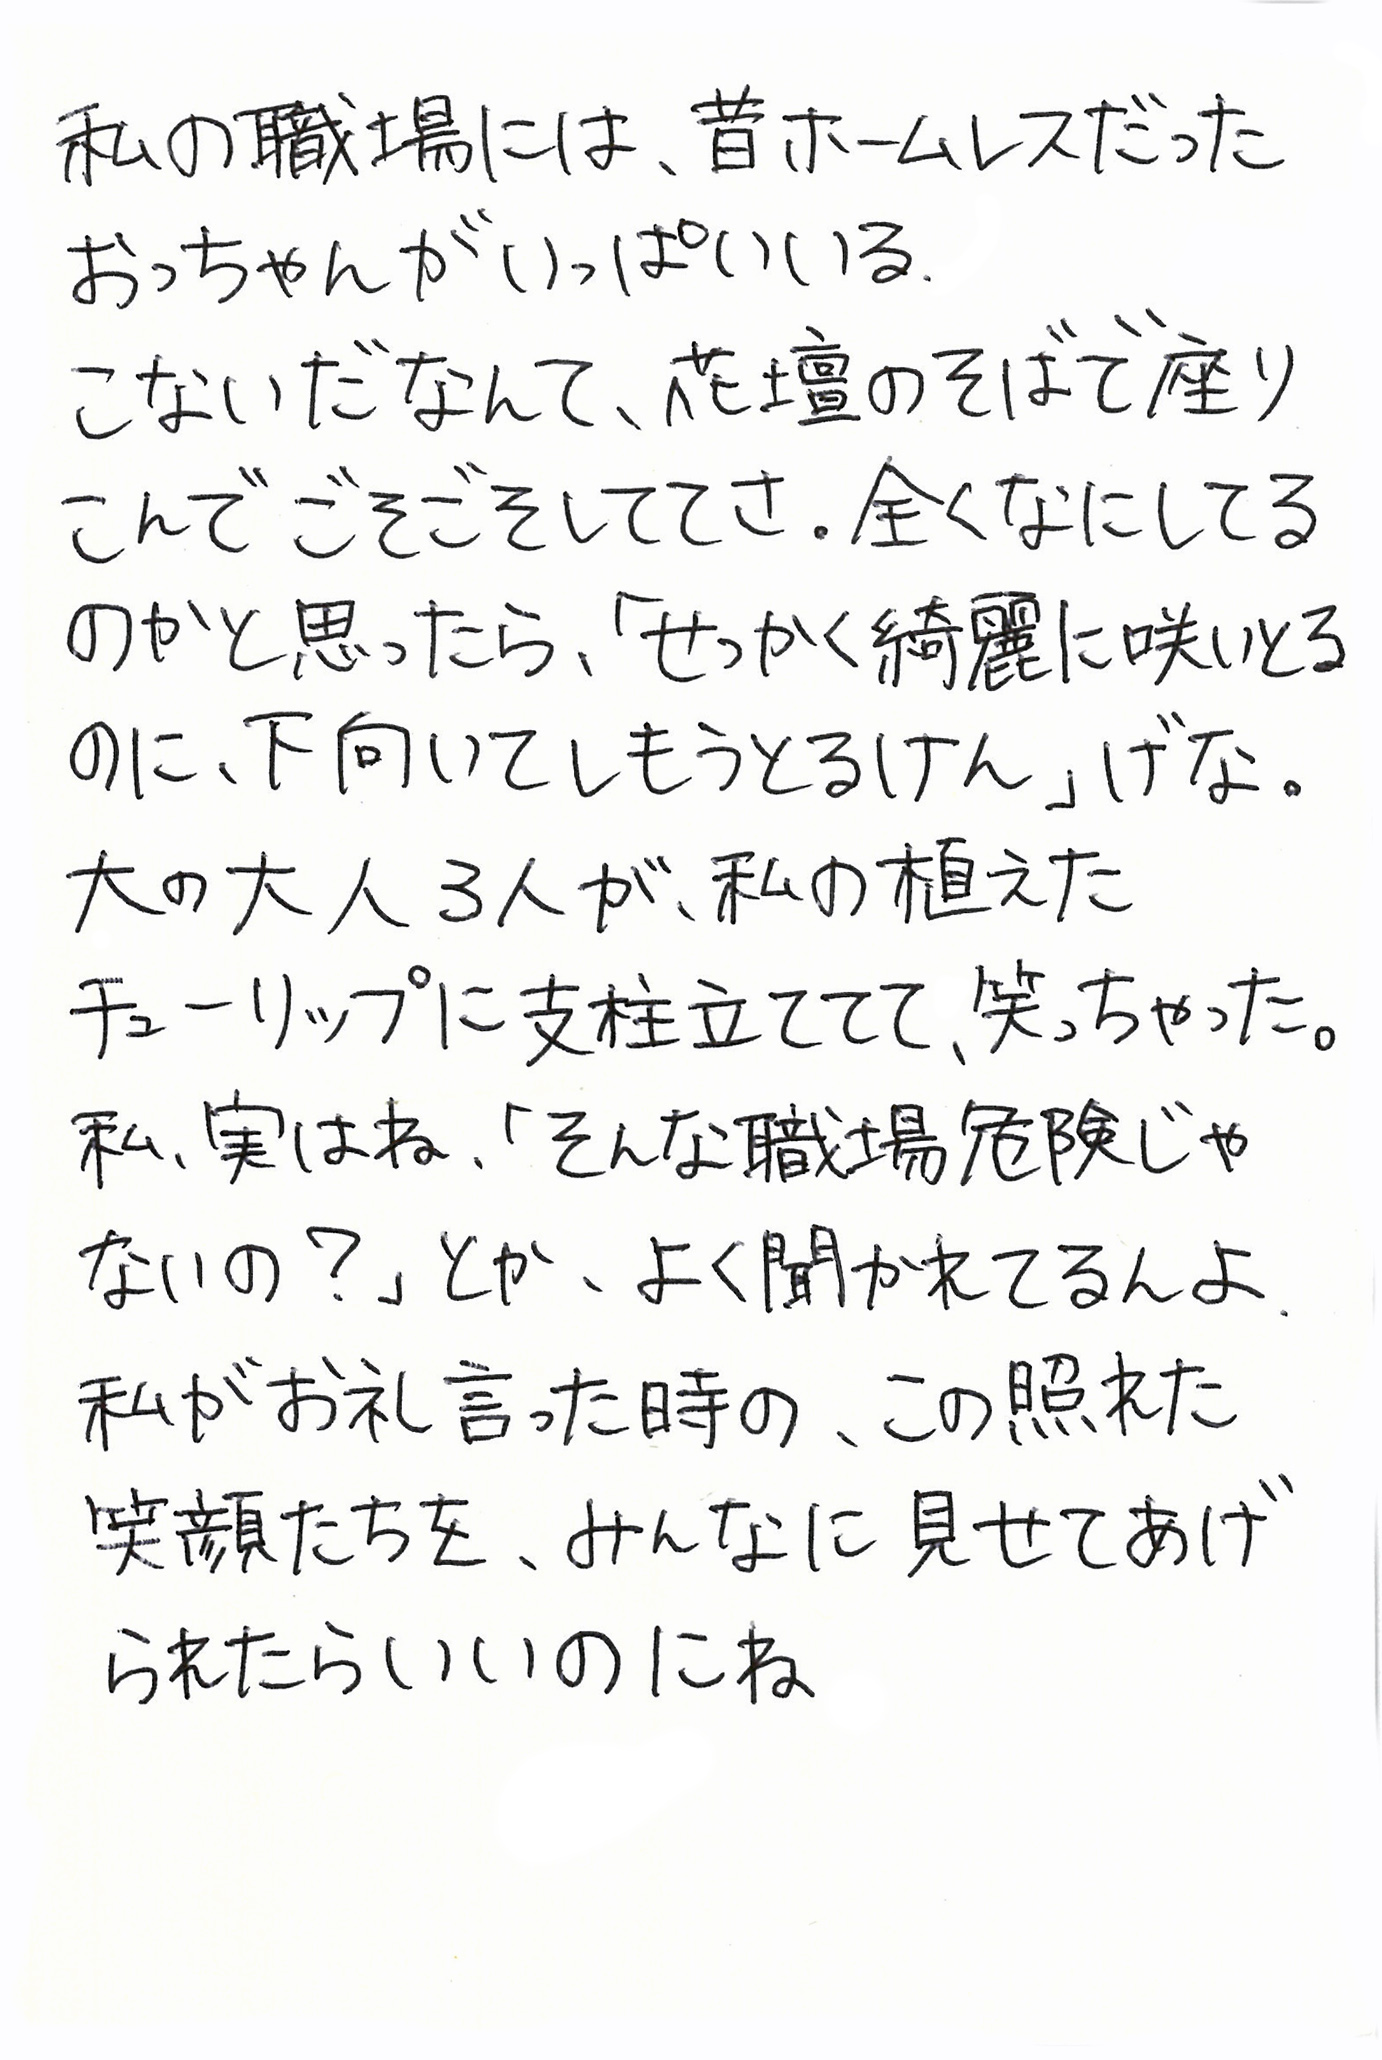 私の職場には、昔ホームレスだった
おっちゃんがいっぱいいる.
こないだなんて、花壇のそばで座り
こんでごそごそしててさ.全くなにしてる
のかと思ったら、「せっかく綺麗に咲いとる
のに、下向いてしもうとるけん」げな。
大の大人3人が、私の植えた
チューリップに支柱立ててて、笑っちゃった。
私、実はね、「そんな職場危険じゃ
ないの?」とか、よく聞かれてるんよ.
私がお礼言った時の、この照れた
笑顔たちを、みんなに見せてあげ
られたらいいのにね